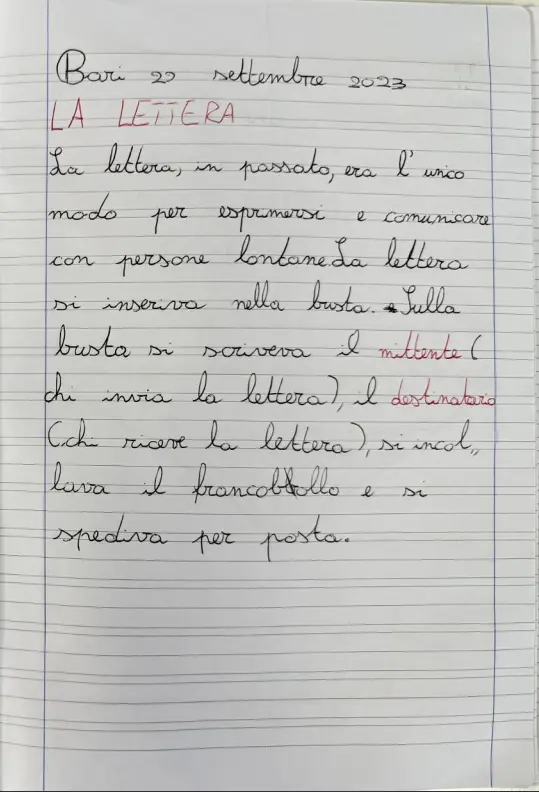 Bari 22 settembre 2023
LA LETTERA
La lettera, in passato, era l'unico
modo per esprimersi e comunicare
con persone lontane.La lettera
si inseriva nella busta. Sulla
busta si scriveva il mittente (
chi invia la lettera), il destinatario
(chi riceve la lettera), si incol„
lava il francobollo e si
spediva per posta.